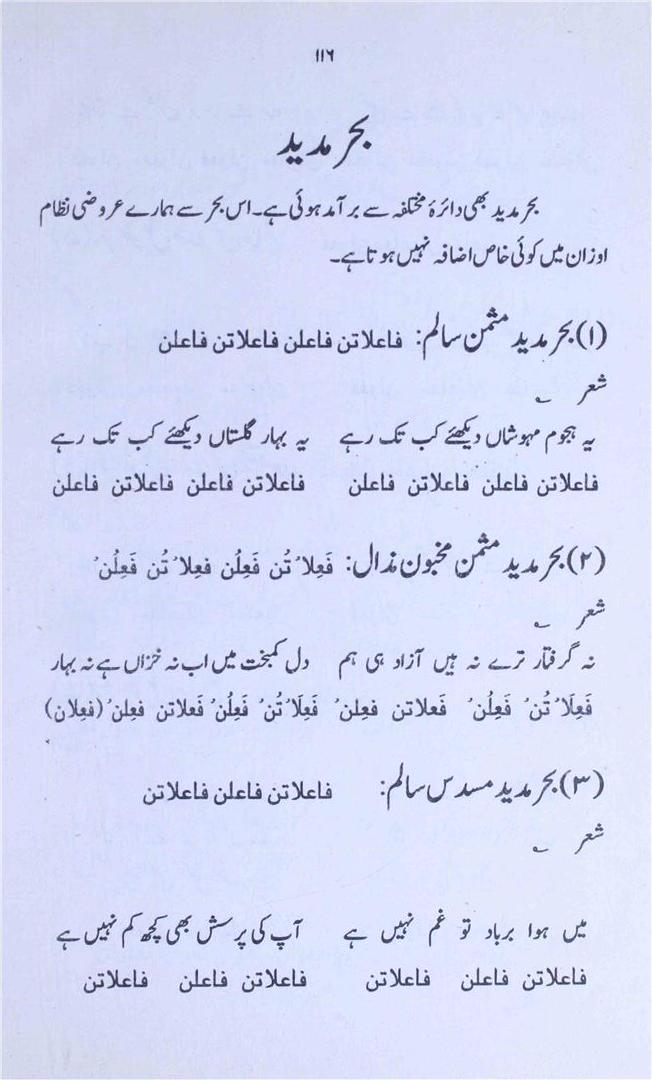 ۱۱۶
بحر مدید
بحر مدید بھی دائرۂ مختلفہ سے برآمد ہوئی ہے۔ اس بحر سے ہمارے عروضی نظام
اوزان میں کوئی خاص اضافہ نہیں ہوتا ہے۔
(۱) بحر مدید مثمن سالم: فاعلاتن فاعلن فاعلاتن فاعلن
شعر ؎
یہ ہجوم مہوشاں دیکھئے کب تک رہے یہ بہار گلستاں دیکھئے کب تک رہے
فاعلاتن فاعلن فاعلاتن فاعلن فاعلاتن فاعلن فاعلاتن فاعلن
(۲) بحر مدید مثمن مخبون مذال: فَعِلاتُن فَعِلُن فعِلاتُن فَعِلُن
شعر ؎
نہ گرفتار ترے نہ ہیں آزاد ہی ہم دل کمبخت میں اب نہ خزاں ہے نہ بہار
فَعِلَاتُن فَعِلُن فَعلاتن فعِلن فَعِلَاتُن فَعِلُن فَعلاتن فعِلن (فَعِلان)
(۳) بحر مدید مسدس سالم: فاعلاتن فاعلن فاعلاتن
شعر ؎
میں ہوا برباد تو غم نہیں ہے آپ کی پرسش بھی کچھ کم نہیں ہے
فاعلاتن فاعلن فاعلاتن فاعلاتن فاعلن فاعلاتن